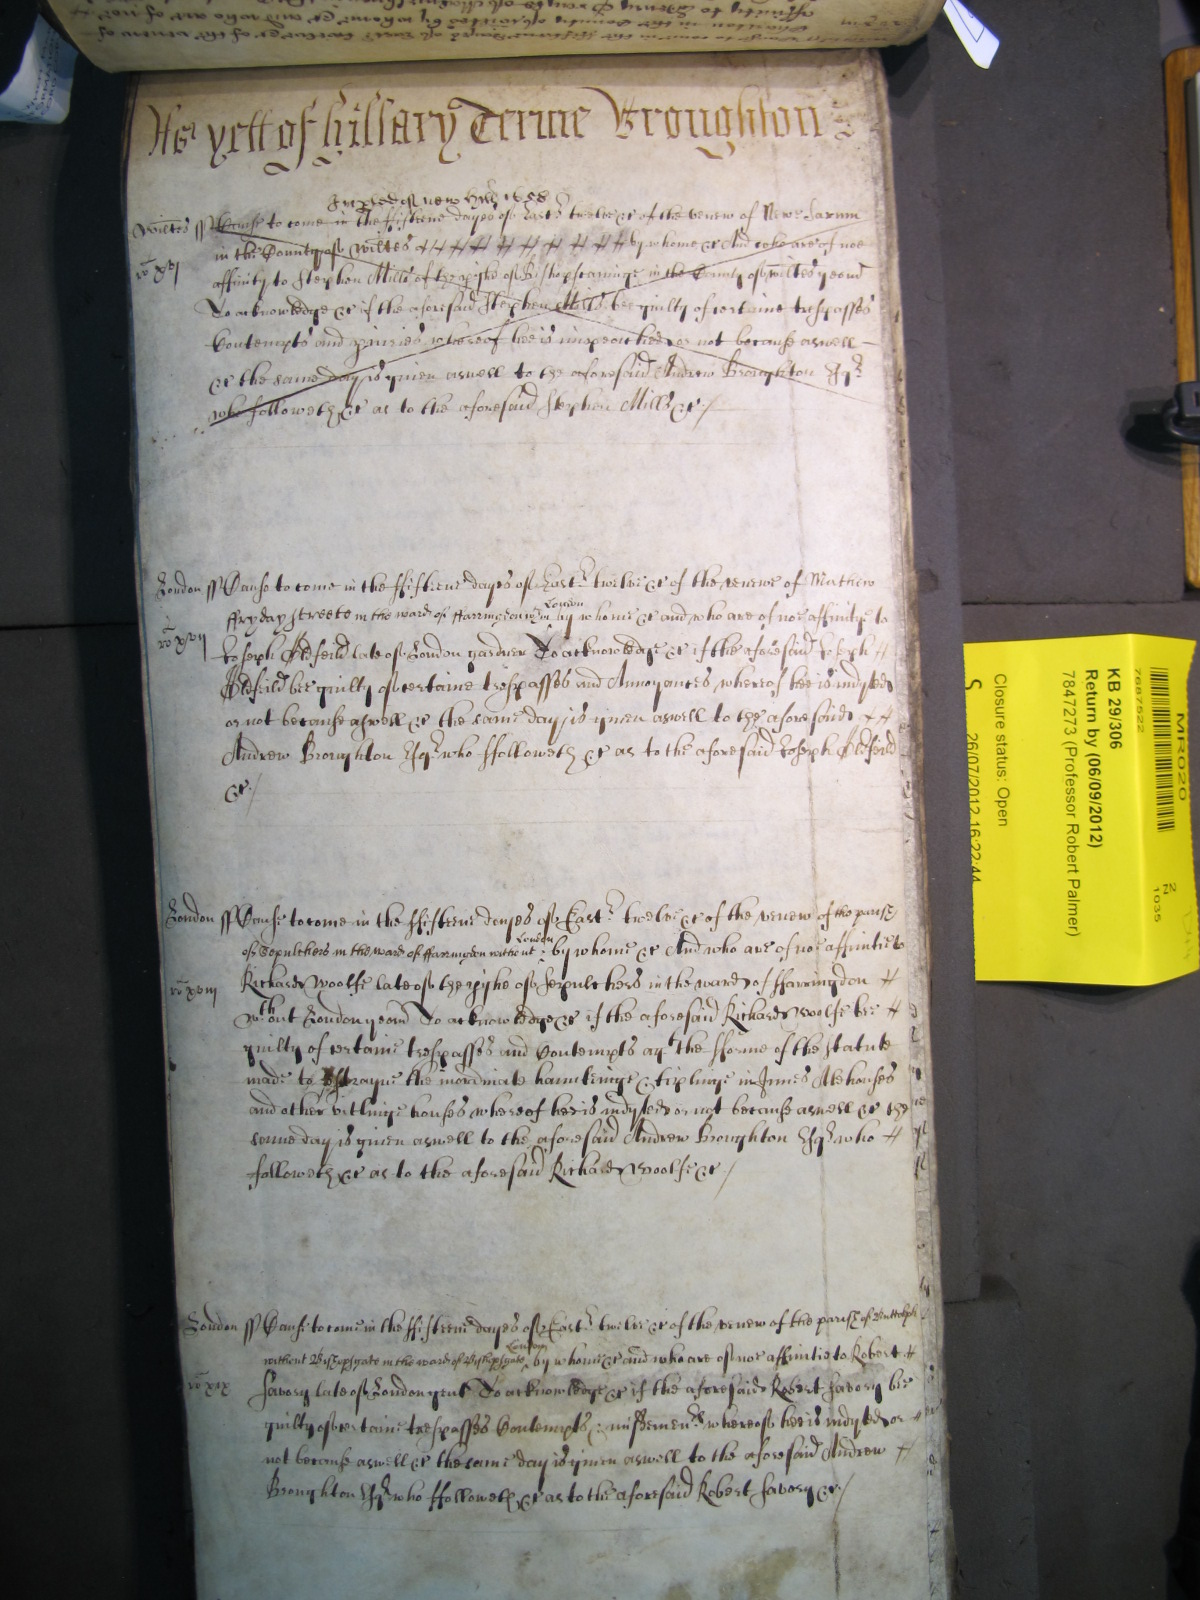 As yett of hillary Terme Broughton
Wiltes ss Cause to come in the ffifteene dayes of East' twelve &c of the venew of New Sarum
in the County of Wiltes by whome &c And who are of noe
affinity to Stephen Mills of the pishe of Bishopscanings in the County of Wiltes yeom
To acknowledge &c if the aforesaid Stephen Mills bee guilty of certaine trespasses
Contempts and iniuries whereof hee is impeached or not because aswell
&c the same day is given aswell to the aforesaid Andrew Broughton Esqr
who followeth &c as to the aforesaid Stephen Mills &c /
London ss Cause to come in the ffifteene dayes of East' twelve &c of the venewe of Mathew
ffryday streete in the ward of ffarringdon London by whome &c and who are of noe affinitye to
ro xvii
Joseph Oldfeild late of London gardner To acknowledge &c if the aforesaid Joseph
Oldfeild bee guilty of certaine trespasses and Annoyances whereof hee is indyted
or not because aswell &c the same day is given aswell to the aforesaid
Andrew Broughton Esqr who ffolloweth &c as to the aforesaid Joseph Oldfeild
&c /
London ss Cause to come in the ffifteene dayes of East' twelve &c of the venew of the parish
of Sepulchers in the ward of ffarringdon without London by whome &c And who are of noe affinitie to
ro xviii
Richard Woolfe late of the pishe of Sepulchers in the ward of ffarringdon
wthout London yeom To acknowledge &c if the aforesaid Richard Woolfe bee
guilty of certaine trespasses and Contempts agt the fforme of the statute
made to the inordinate haunteinge & tiplinge in Innes Alehouses
and other vitlinge houses whereof hee is indyted or not because aswell &c the
same day is given aswell to the aforesaid Andrew Broughton Esqr who
followeth &c as to the aforesaid Richard Woolfe &c /
London ss Cause to come in the ffifteene dayes of East' twelve &c of the venew of the parish of Buttolph
without Bishopsgate in the ward of Bishopsgate London by whome &c and who are of noe affinitie to Robert
ro xix
Savory late of London gent To acknowledge &c if the aforesaid Robert Savory bee
guilty of certaine trespasses Contempts & whereof hee is indyted or
not because aswell &c the same day is given aswell to the aforesaid Andrew
Broughton Esqr who ffolloweth &c as to the aforesaid Robert Savory &c /
MR020
7687522
1035
KB 29/306
Return by (06/09/2012)
7847273 (Professor Robert Palmer)
Closure status: Open
S 26/07/2012 16:22:44